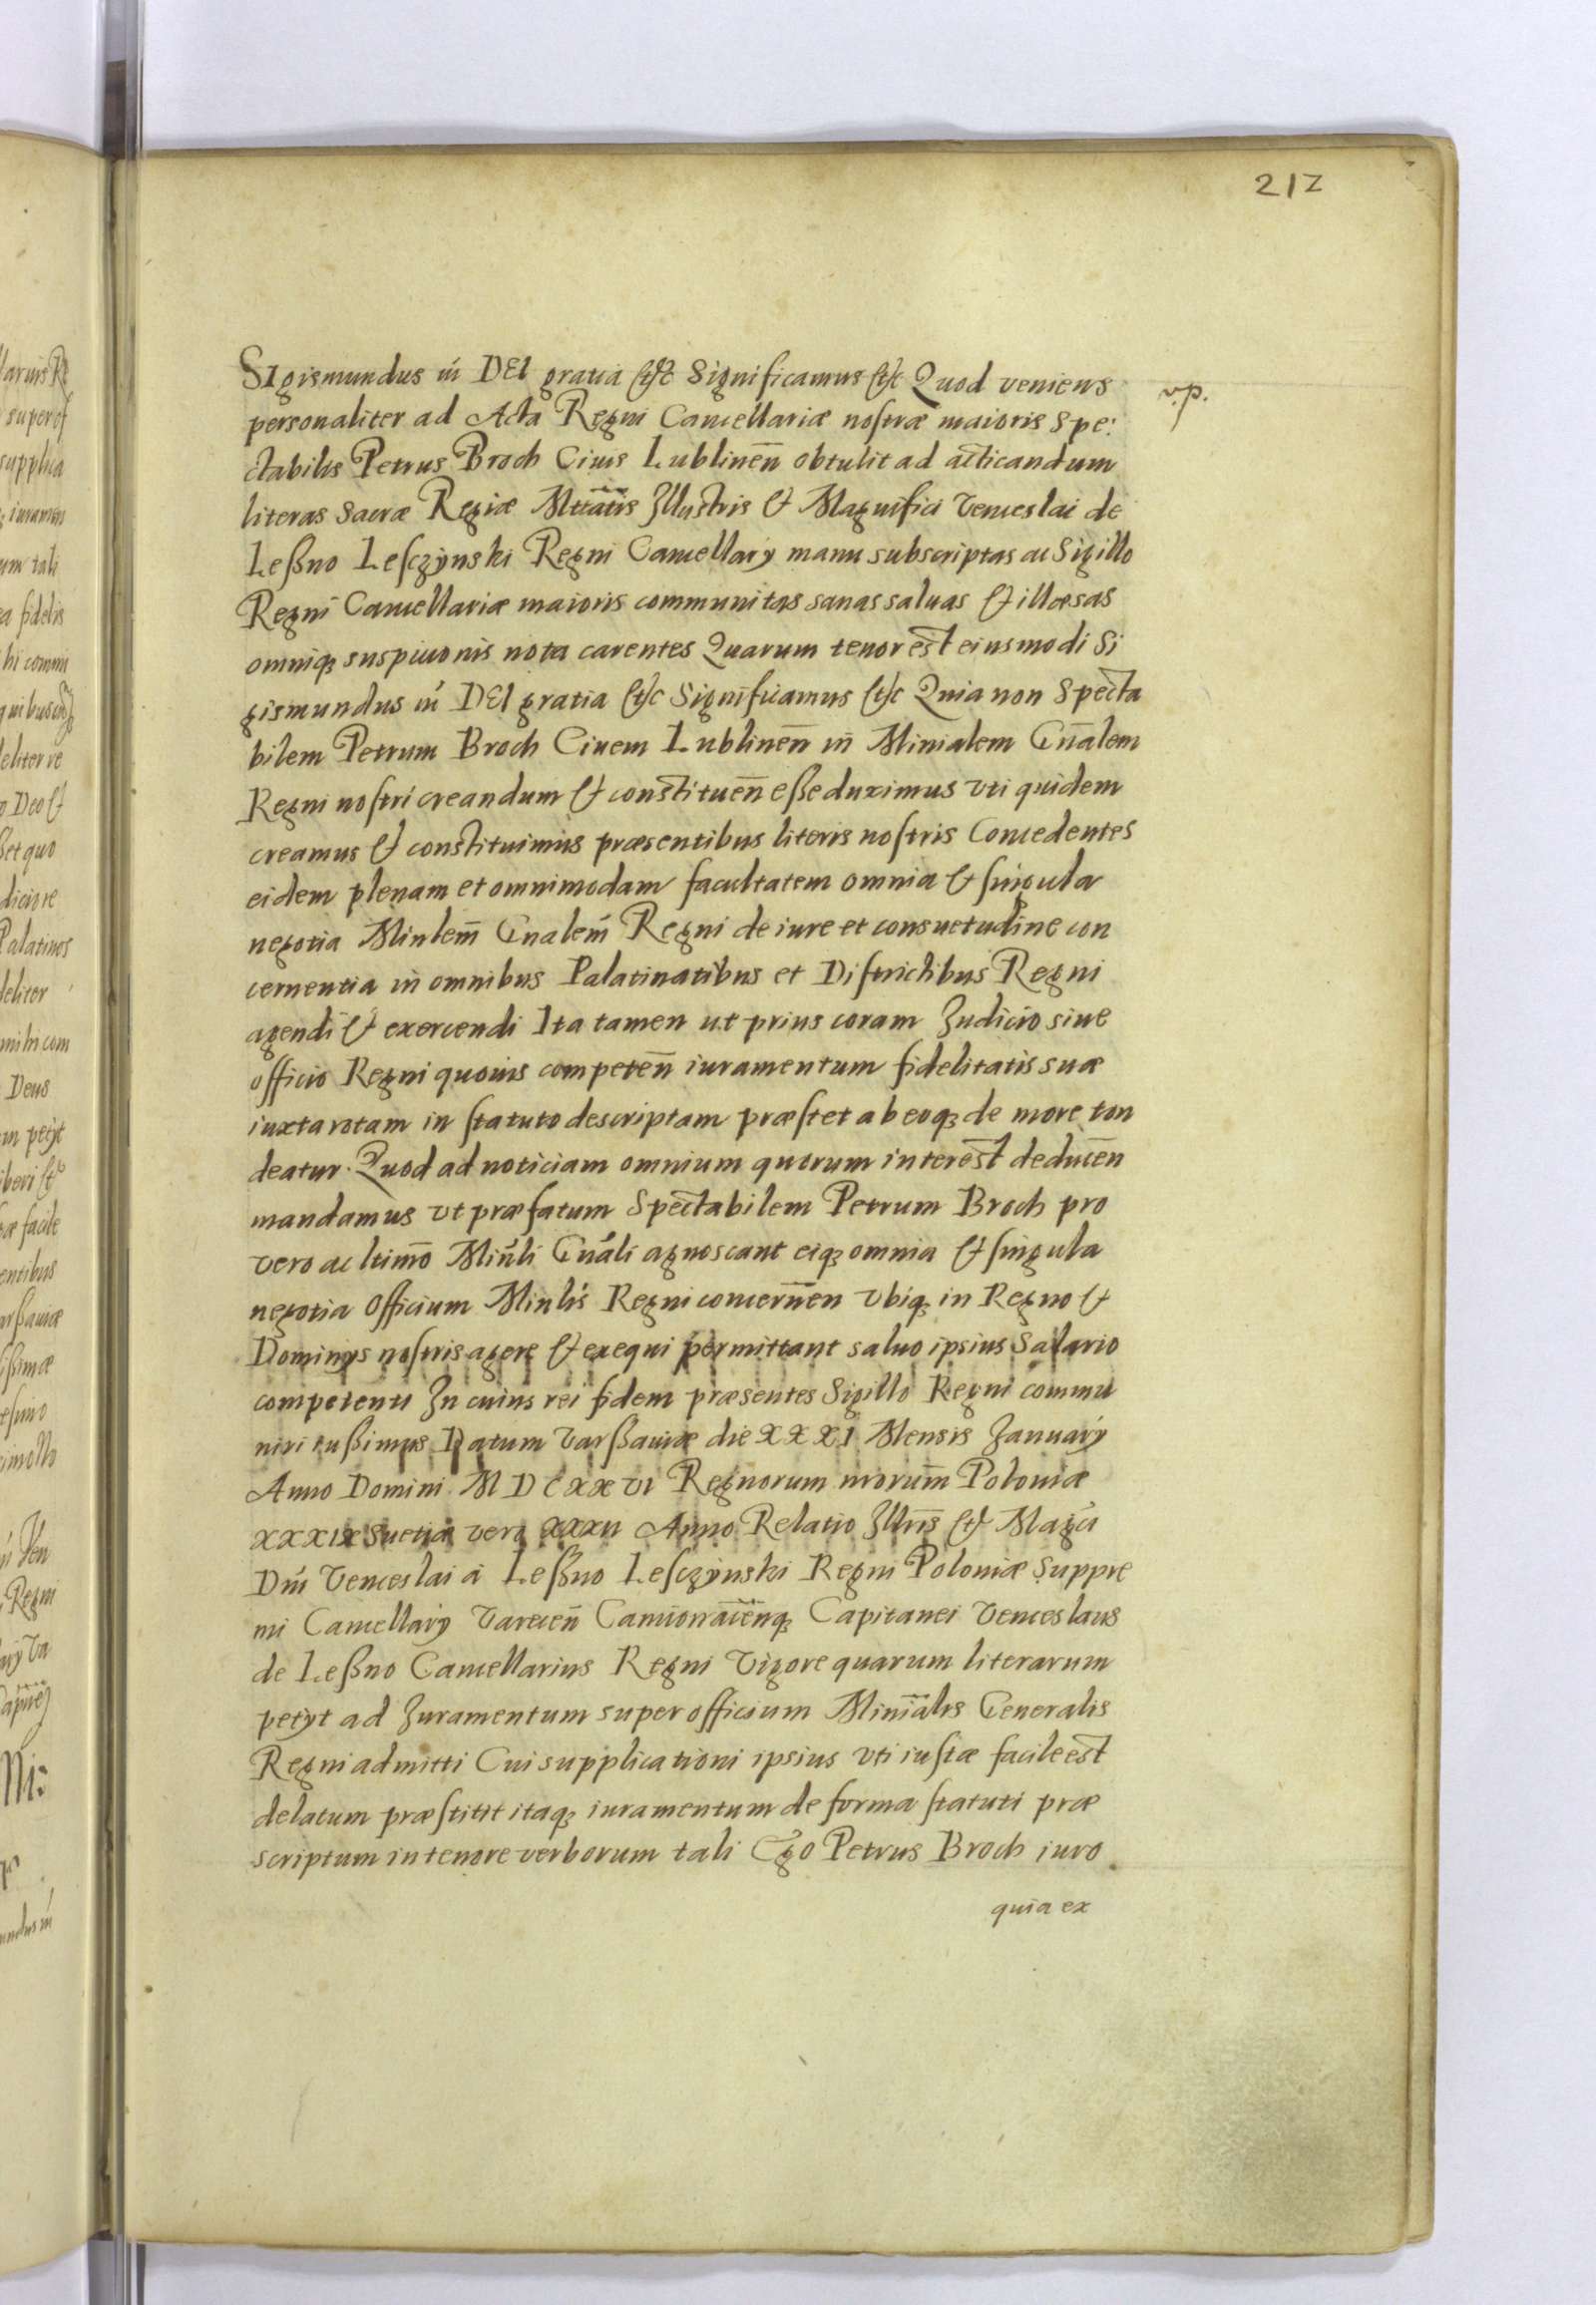 212
Sigismundus iii DEI gratia &c Significamus &c Quod veniens
v.p.
personaliter ad Acta Regni Cancellariæ nostræ maioris Spe:
ctabilis Petrus Broch Ciuis Lublineñ obtulit ad acticandum
literas Sacræ Regiæ Mttatis Illustris & Magnifici Venceslai de
Leßno Lesczÿnski Regni Cancellarÿ manu subscriptas ac Sigillo
Regni Cancellariæ maioris communitas sanas saluas & illæsas
omniq; suspicionis nota carentes Quarum tenor est eiusmodi Si
gismundus iii DEI gratia &c Significamus &c Quia nos Specta
bilem Petrum Broch Ciuem Lublineñ in Minialem Gñalem
Regni nostri creandum & constitueñ eße duximus vti quidem
creamus & constituimus præsentibus literis nostris Concedentes
eidem plenam et omnimodam facultatem omnia & singula
negotia Minlem Gnalem Regni de iure et consuetudine con
cernentia in omnibus Palatinatibus et Districtibus Regni
agendi & exercendi Ita tamen ut prius coram Iudicio siue
officio Regni quouis competeñ iuramentum fidelitatis suæ
iuxta rotam in statuto descriptam præstet ab eoq; de more ton
deatur. Quod ad noticiam omnium quorum interest deduceñ
mandamus vt præfatum Spectabilem Petrum Broch pro
vero ac ltimo Minli Gnali agnoscant eiq; omnia & singula
negotia Officium Minlis Regni concerneñ vbiq; in Regno &
Dominÿs nostris agere & exequi permittant saluo ipsius Salario
competenti In cuius rei fidem præsentes Sigillo Regni commu
niri iußimus Datum Varßauiæ die XXXI Mensis Ianuarÿ
Anno Domini MDCXXVI Regnorum nrorum Poloniæ
XXXIX Suetiæ vero XXXII Anno Relatio Illris & Magci
Dni Venceslai á Leßno Lesczÿnski Regni Poloniæ Suppre
mi Cancellarÿ Vareceñ Camionaceñq; Capitanei Venceslaus
de Leßno Cancellarius Regni Vigore quarum literarum
petÿt ad Iuramentum super officium Minialis Generalis
Regni admitti Cui supplicationi ipsius vti iustæ facile est
delatum præstitit itaq; iuramentum de forma statuti præ
scriptum in tenore verborum tali Ego Petrus Broch iuro
quia ex